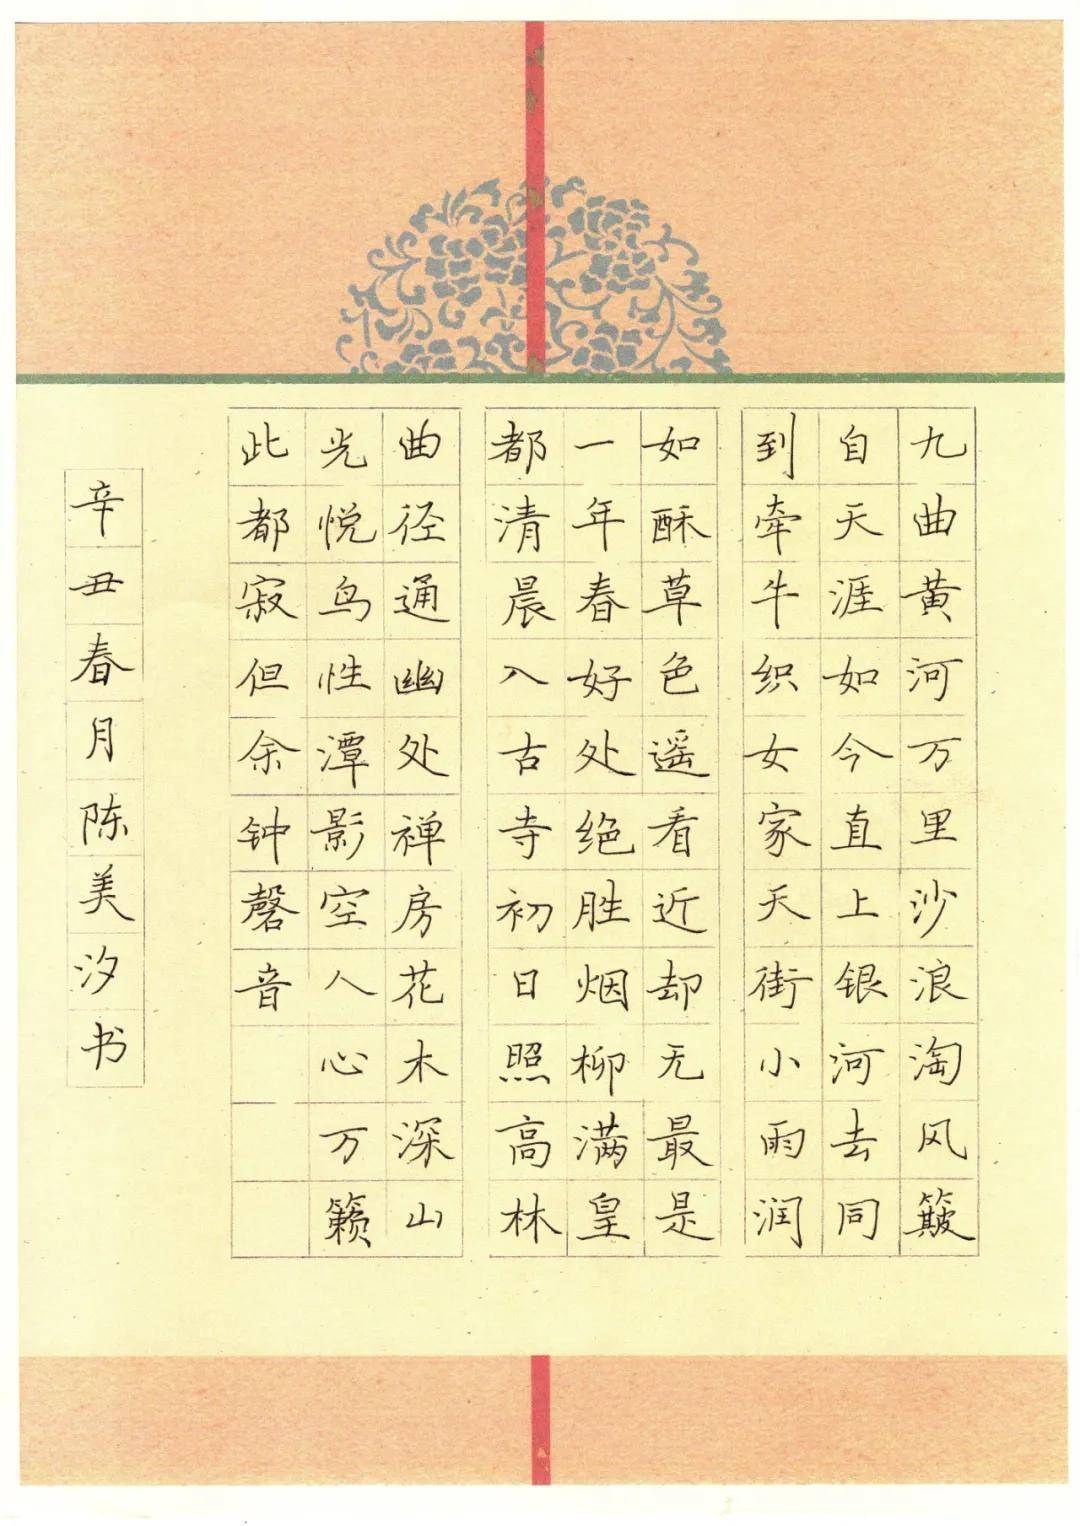 九曲黄河万里沙浪淘风簸
自天涯如今直上银河去同
到牵牛织女家天街小雨润
如酥草色遥看近却无最是
一年春好处绝胜烟柳满皇
都清晨入古寺初日照高林
曲径通幽处禅房花木深山
光悦鸟性潭影空人心万籁
此都寂但余钟磬音
辛丑春月陈美汐书